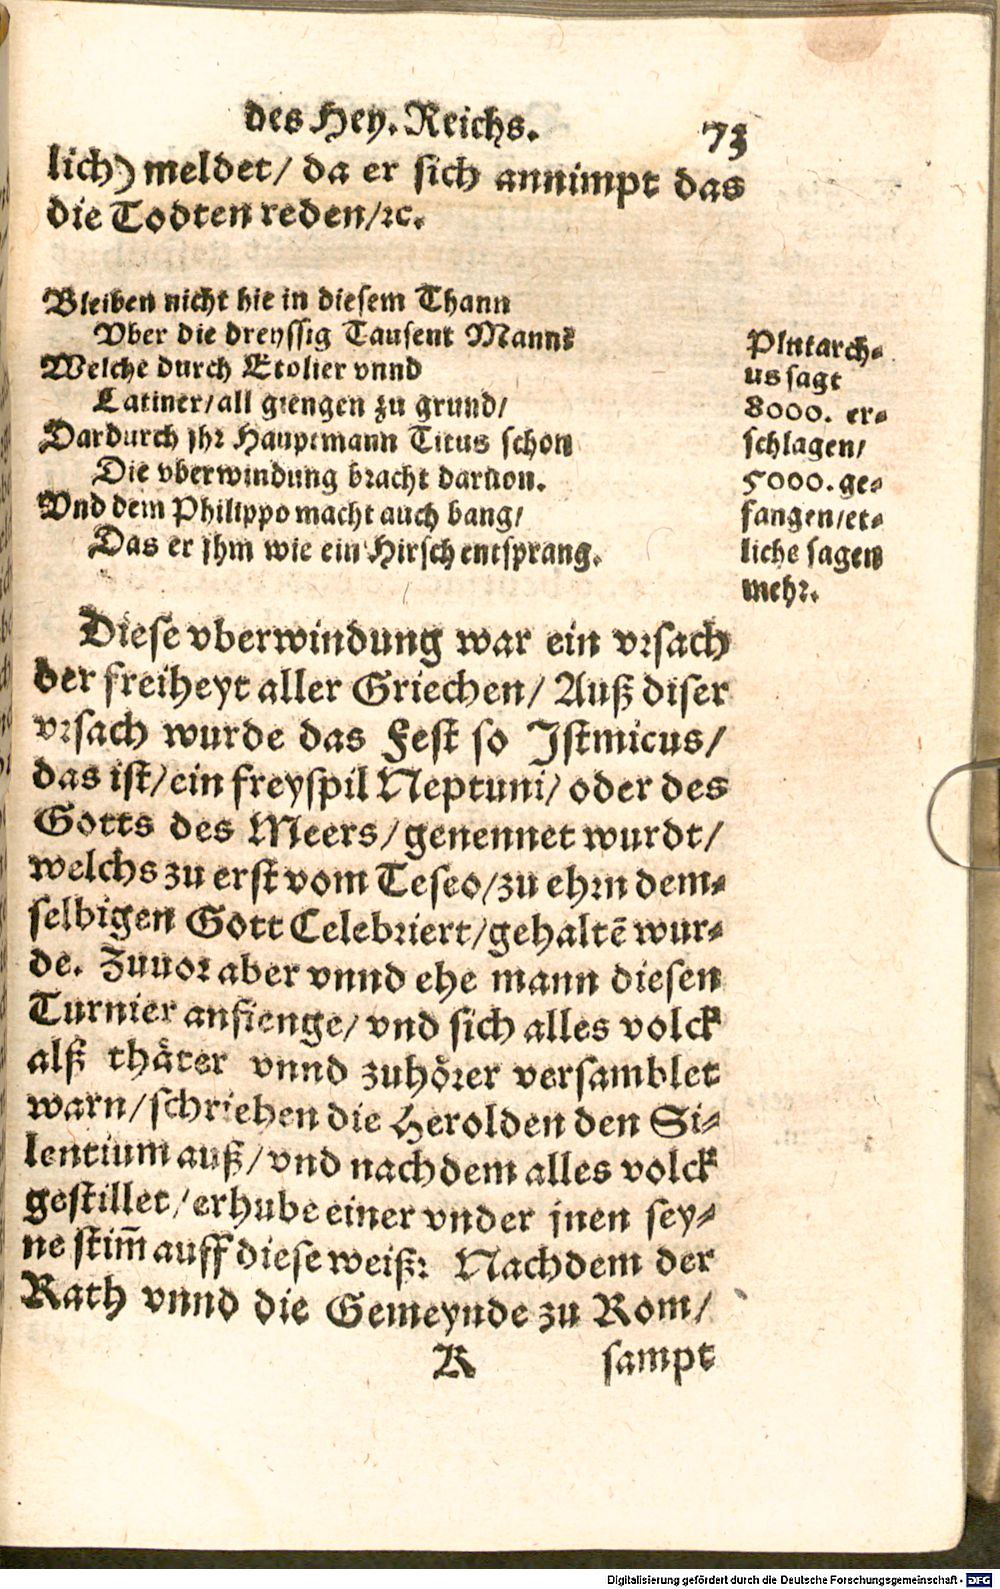 des Hey. Reichs. 73
lich) meldet/ da er sich annimpt das
die Todten reden/ꝛc.
Bleiben nicht hie in diesem Thann
Vber die dreyssig Tausent Manns
Welche durch Etolier vnnd
Latiner/all giengen zu grund/
Dardurch jhꝛ Hauptmann Titus schon
Die vberwindung bꝛacht daruon.
Vnd dem Philippo macht auch bang/
Das er jhm wie ein Hirsch entsprang.
Plutarch⸗
us sagt
8000. er⸗
schlagen/
5000. ge⸗
fangen/et⸗
liche sagen
mehꝛ.
Diese vberwindung war ein vꝛsach
der freiheyt aller Griechen/ Auß diser
vꝛsach wurde das Fest so Istmicus/
das ist/ein freyspil Neptuni/ oder des
Gotts des Meers/genennet wurdt/
welchs zu erst vom Teseo/zu ehꝛn dem⸗
selbigen Gott Celebꝛiert/gehaltẽ wur⸗
de. Zuuoꝛ aber vnnd ehe mann diesen
Turnier anfienge/ vnd sich alles volck
alß thåter vnnd zuhoͤꝛer versamblet
warn/schriehen die Herolden den Si⸗
lentium auß/vnd nach dem alles volck
gestillet/erhube einer vnder jnen sey⸗
ne stim̃ auff diese weiß: Nachdem der
Rath vnnd die Gemeynde zu Rom/
K sampt
Digitalisierung gefördert durch die Deutsche Forschungsgemeinschaft - DFG